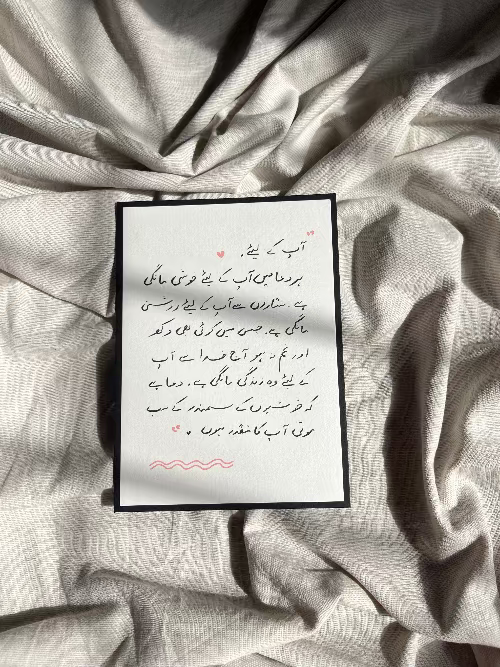 " آپ کے لیئے.
ہر دعا میں آپ کے لیئے خوشی مانگی
ہے. ستاروں سے آپ کے لیئے روشنی
مانگی ہے. جس میں کوئی بھی دکھ
اور غم نہ ہو آج خدا سے آپ
کے لیئے وہ زندگی مانگی ہے. دعا ہے
کہ خوشیوں کے سمندر کے سب
موتی آپ کا مقدر ہوں . "